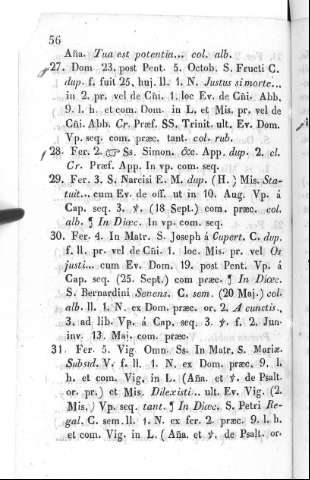 56
Aña. Tua est potentia... col. alb.
27. Dom 23. post Pent. 5. Octob. S. Fructi C.
dup. f. fuit 25. huj. ll. 1. N. Justus si morte...
in 2. pr. vel de Cñi. 1. loc Ev. de Cñi. Abb.
9. l. h. et com. Dom. in L. et Mis. pr. vel de
Cñi. Abb. Cr. Præf. SS. Trinit. ult. Ev. Dom.
Vp. seq. com. præc. tant. col. rub.
28. Fer. 2. ☞ Ss. Simon. &c. App. dup. 2. cl.
Cr. Præf. App. In vp. com. seq.
29. Fer. 3. S. Narcisi E. M. dup. (H.) Mis. Sta-
tuit... cum Ev. de off. ut in 10. Aug. Vp. á
Cap. seq. 3. ℣. (18 Sept.) com. præc. col.
alb. ¶ In Diœc. In vp. com. seq.
30. Fer. 4. In Matr. S. Joseph á Cupert. C. dup.
f. ll. pr. vel de Cñi. 1. loc. Mis. pr. vel Os
justi... cum Ev. Dom. 19. post Pent. Vp. á
Cap. seq. (25. Sept.) com præc. ¶ In Diœc.
S. Bernardini Senens. C. sem. (20 Maj.) col.
alb. ll. 1. N. ex Dom. præc. or. 2. A cunctis.,
3. ad lib. Vp. á Cap. seq. 3. ℣. f. 2. Jun-
inv. 13. Maj. com. præc.
31. Fer. 5. Vig. Omn. Ss. In Matr. S. Mariæ.
Subsid. V. f. ll. 1. N. ex Dom. præc. 9. l.
h. et com. Vig. in L. (Aña. et ℣. de Psalt.
or. pr.) et Mis. Dilexisti... ult. Ev. Vig. (2.
Mis.) Vp. seq. tant. ¶ In Diœc. S. Petri Re-
gal. C. sem. ll. 1. N. ex fer. 2. præc. 9. l. h.
et com. Vig. in L. (Aña. et ℣. de Psalt. or.